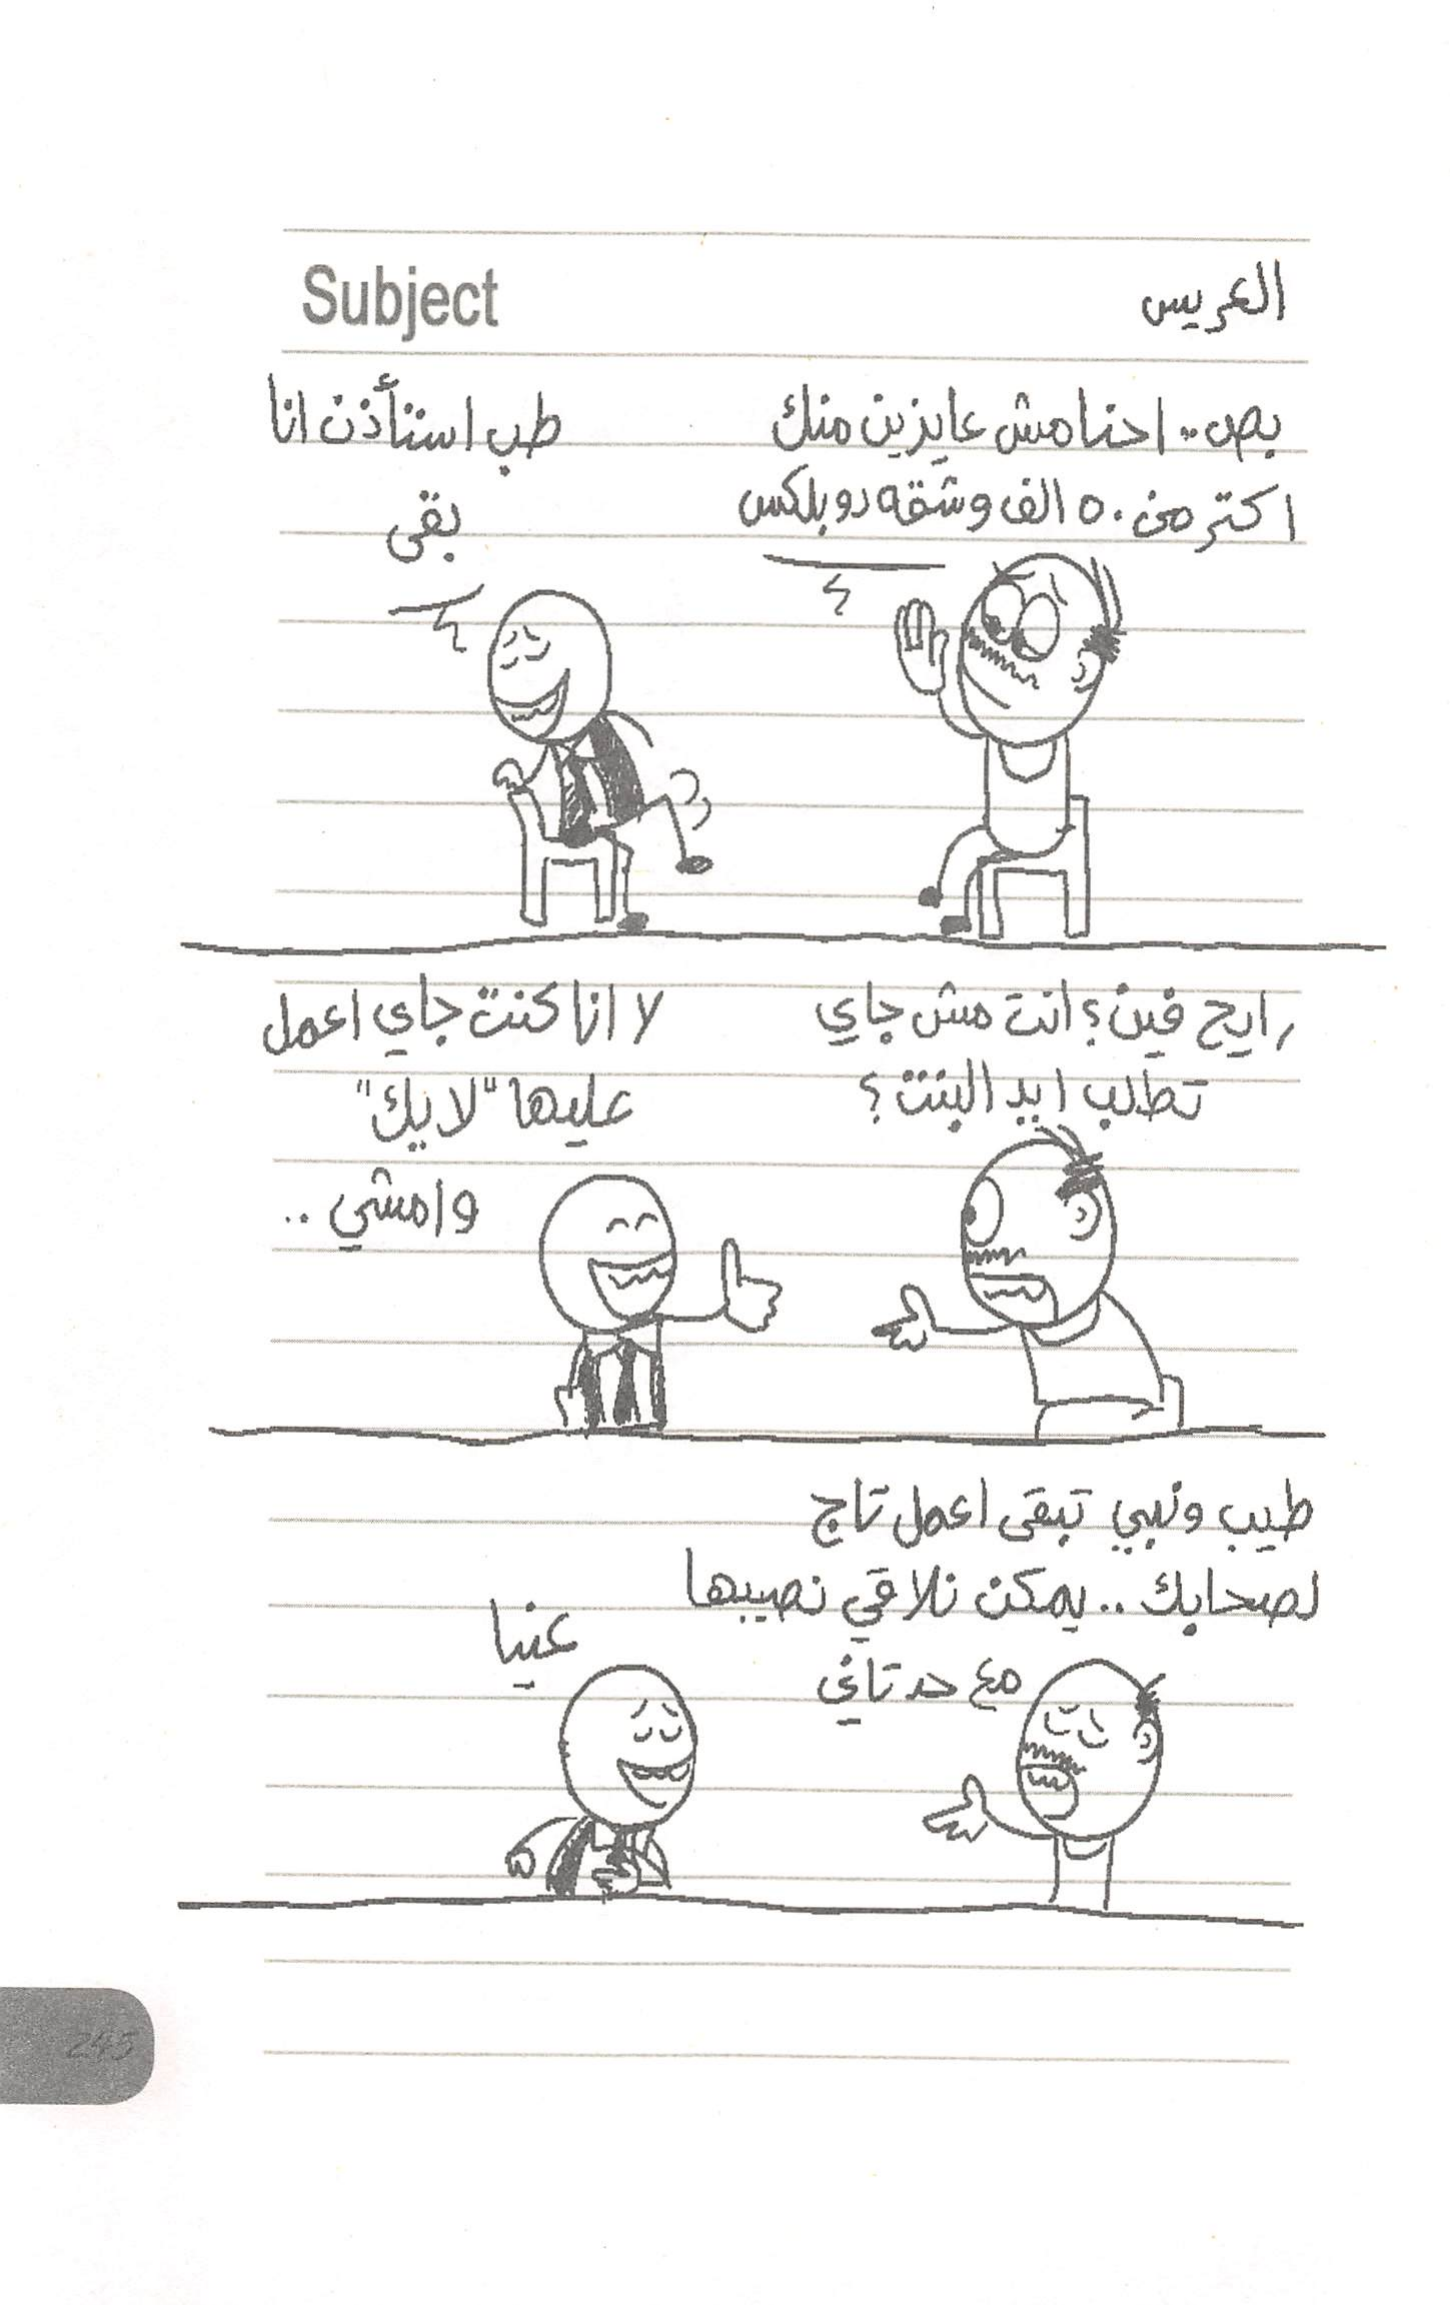 Subject
العريس
بص.. احنا مش عايزين منك
اكتر من ٥٠ الف وشقه دوبلكس
طب استأذن انا
بقى
رايح فين؟ انت مش جاي
تطلب ايد البنت؟
لا انا كنت جاي اعمل
عليها "لايك"
وامشي..
طيب ونبي تبقى اعمل تاج
لصحابك.. يمكن نلاقي نصيبها
مع حد تاني
عنيا
245